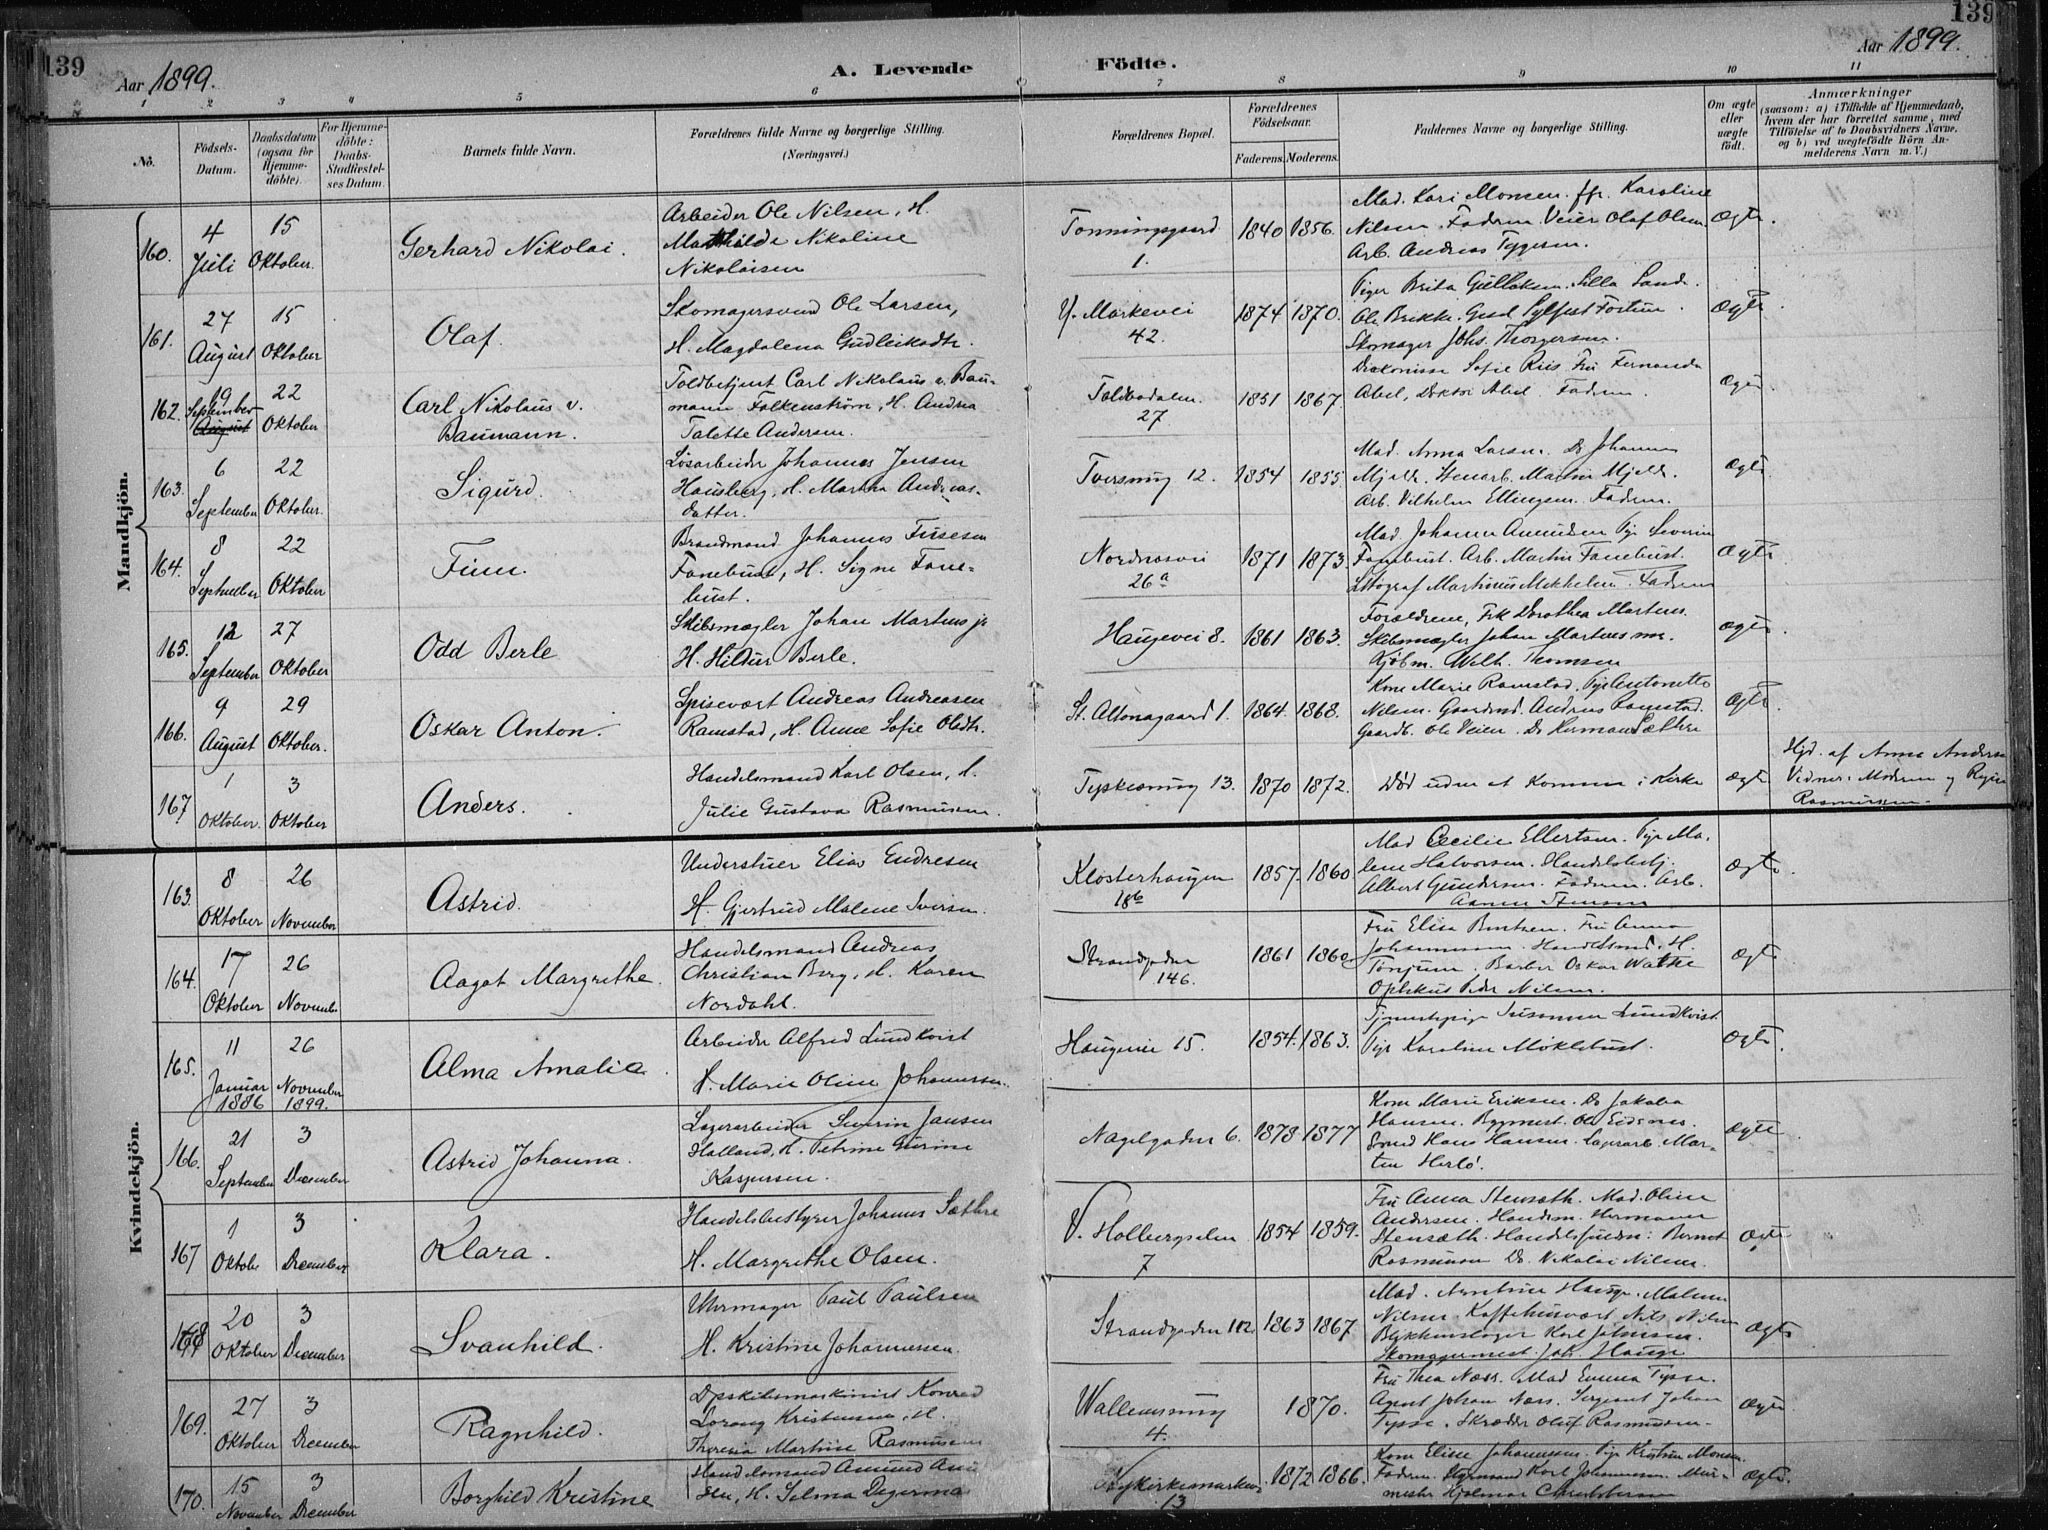 139
Aar 1899.
A. Levende
Födte.
Aar 1899.
139
1 2 3 4 5 6 7 8 9 10 11
No.
Födsels-Datum.
Daabsdatum (ogsaa for Hjemme-döbte).
For Hjemme-döbte: Daabs-Stadfæstel-ses Datum.
Barnets fulde Navn.
Forældrenes fulde Navne og borgerlige Stilling.
(Næringsvei.)
Forældrenes Bopæl.
Forældrenes Födselsaar.
Faderens. Moderens.
Faddernes Navne og borgerlige Stilling.
Om ægte eller uægte födt.
Anmærkninger
(saasom: a) i Tilfælde af Hjemmedaab, hvem der har forrettet samme, med Tilföielse af to Daabsvidners Navne, og b) ved uægtefödte Börn An-melderens Navn m. V.)
Mandkjön.
160. 4 Juli 15 Oktober. Gerhard Nikolai.
Arbeider Ole Nilsen, H.
Mathilde Nikoline
Nikolaisen
Tonningsgaard 1. 1840 1856.
Mad. Kari Monsen. Karoline
Nilsen. Faderen. Veier Olaf Olsen
Arb. Andreas Tygesen.
Ægte.
161. 27 August 15 Oktober Olaf.
Skomagersvend Ole Larsen,
H. Magdalena Gudleiksdtr.
Y. Markevei 42. 1874 1870.
Piger Brita Gullaksen. Silla Sande.
Ole Brekke. Gesel Sylfest Fortun.
Skomager Johs. Thorgersen.
Ægte
162. 19 September August 22 Oktober Carl Nikolaus v. Baumann.
Toldbetjent Carl Nikolaus v. Bau-
mann Falkenström, H. Andrea
Talette Andersen.
Toldbodalm. 27 1851 1867.
Diakonisse Sofie Riis Fru Fernanda
Abel, Doktor Abel. Faderen.
Ægte
163. 6 September 22 Oktober. Sigurd.
Løsarbeider Johannes Jensen
Hausberg, H. Martha Andreas-
datter.
Tversmug 12. 1854 1855.
Mad. Anna Larsen. Do Johanne
Mjelde. Stenarb. Martin Mjelde.
Arb. Vilhelm Ellingsen. Faderen.
Ægte
164. 8 September 22 Oktober Finn.
Brandmand Johannes
Fanebust, H. Signe Fane-
bust.
Nordnæsvei 26a 1871 1873.
Mad. Johanne Amundsen Pige Severine
Fanebust. Arb. Martin Fanebust.
Litograf Martinus Mikkelsen. Faderen
Ægte
165. 12 September 27 Oktober Odd Berle
Skibsmægler Johan Martens jr
H. Hildur Berle.
Haugevei 8. 1861 1863.
Forældrene, Frk Dorothea Martens.
Skibsmægler Johan Martens snr.
Kjöbm. Wilh. Thomsen
Ægte.
166. 9 August 29 Oktober. Oskar Anton.
Spisevært Andreas Andreasen
Ramstad, H. Anne Sofie Olsdtr.
St. Altonagaard 1. 1864. 1868.
Kone Marie Ramstad. Pige Antonette
Nilsen. Gaardmd. Andreas Ramstad.
Gaardb. Ole Veien. Do Herman Sæthre
Ægte.
167. 1 Oktober. 3 Oktober Anders.
Handelsmand Karl Olsen, H.
Julie Gustava Rasmussen.
Tyskesmug 13. 1870 1872.
Död uden at komme i Kirke
Ægte
Hjd. af Anna Andersen
Vidner: Moderen og
Rasmussen.
Kvindekjön.
163. 8 Oktober 26 November Astrid.
Understuer Elias Endresen
H. Gjertrud Malene Iversen.
Klosterhaugen 18b 1857. 1860
Mad Cecilie Ellertsen. Pige Ma-
lene Halvorsen. Handelsbetj.
Albert Gundersen. Faderen. Arb.
Ægte
164. 17 Oktober 26 Novemb. Aagot Margrethe.
Handelsmand Andreas
Christian Berg, H. Karen
Nordahl.
Strandgaden 146. 1861 1860
Fru Elisa Berntsen. Fru Anna
Johannessen. Handelsmd. H.
Tönjum. Barber Oskar Wathe
Optikus Peder Nilsen.
Ægte
165. 11 Januar 1886 26 November 1899. Alma Amalia.
Arbeider Alfred Lundkvist
H. Marie Oline Johannessen.
Haugevei 15. 1854. 1863.
Tjenestepige Susanne Lundkvist.
Pige Karoline Möklebust.
Ægte.
166. 21 September 3 December Astrid Johanna.
Lagerarbeider Severin Jansen
Halland, H. Petrine Gurine
Kaspersen.
Nagelgaden 6. 1878 1877
Kone Marie Eriksen. Do Jakoba
Hansen. Bygmest. Ole Eidsnes.
Svend Hans Hansen. Lagerarb. Mar-
tin Herlö.
Ægte.
167 1 Oktober 3 December Klara.
Handelsbestyrer Johannes Sæthre
H. Margrethe Olsen.
V. Holbergsalm. 7 1854 1859.
Fru Anna Stensæth. Mad. Oline
Andersen. Handsm. Hermann
Stensæth. Handelsfuldm: Bernt
Rasmussen Do. Nikolai Nilsen.
Ægte
168 20 Oktober 3 December Svanhild.
Uhrmager Paul Paulsen
H. Kristine Johannessen.
Strandgaden 112. 1863 1867
Mad. Hauge. Malene
Nilsen. Kaffehusvært Nils Nilsen
Blikkenslager Karl Johnsen.
Skomagermest. Jak. Hauge
Ægte
169. 27 Oktober 3 December Ragnhild.
Dpskibsmaskinist Konrad
Lorang Kristensen, H.
Theresia Martine Rasmussen
Wallemsmug 4. 1870.
Fru Thea Næss. Mad Emma Tysse.
Agent Johan Næss. Sergeant Johan
Tysse. Skrædder Oluf Rasmussen.
Ægte
170. 15 November 3 December Borghild Kristine
Handelsmand Amund Amund-
sen, H. Selma Degerman
Nykirkesmarken 13 1872 1866.
Kone Elise Johannessen. Pige Kristine Monsen
Faderen. Styrmand Karl Johannessen. Mur-
mester Hjalmar Christophersen
Ægte.